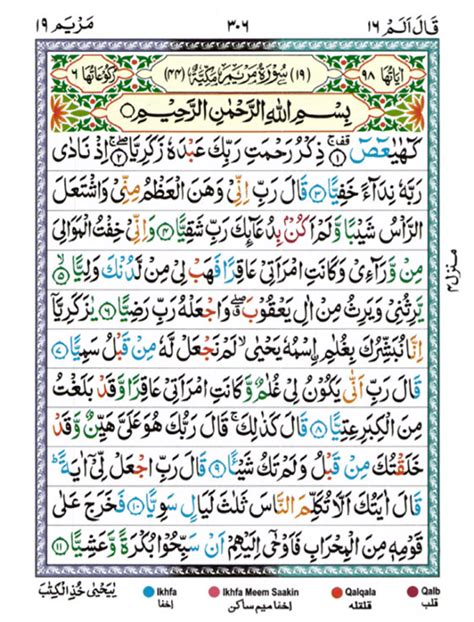 قَالَ اَلَمْ ١٦ ٣٠٦ مَرْيَم ١٩
اٰيَاتُهَا ٩٨ (١٩) سُوْرَةُ مَرْيَمَ مَكِّيَّةٌ (٤٤) رُكُوْعَاتُهَا ٦
بِسْمِ اللّٰهِ الرَّحْمٰنِ الرَّحِيْمِ
كٓهٰيٰعٓصٓ ۚ ﴿١﴾ ذِكْرُ رَحْمَتِ رَبِّكَ عَبْدَهٗ زَكَرِيَّا ۖ ﴿٢﴾ اِذْ نَادٰى
رَبَّهٗ نِدَآءً خَفِيًّا ﴿٣﴾ قَالَ رَبِّ اِنِّىْ وَهَنَ الْعَظْمُ مِنِّىْ وَاشْتَعَلَ
الرَّاْسُ شَيْبًا وَّلَمْ اَكُنْۢ بِدُعَآئِكَ رَبِّ شَقِيًّا ﴿٤﴾ وَاِنِّىْ خِفْتُ الْمَوَالِىَ
مِنْ وَّرَآءِىْ وَكَانَتِ امْرَاَتِىْ عَاقِرًا فَهَبْ لِىْ مِنْ لَّدُنْكَ وَلِيًّا ۙ ﴿٥﴾
يَّرِثُنِىْ وَيَرِثُ مِنْ اٰلِ يَعْقُوْبَ ۖ وَاجْعَلْهُ رَبِّ رَضِيًّا ﴿٦﴾ يٰزَكَرِيَّآ
اِنَّا نُبَشِّرُكَ بِغُلٰمِ ۨاسْمُهٗ يَحْيٰى ۙ لَمْ نَجْعَلْ لَّهٗ مِنْ قَبْلُ سَمِيًّا ﴿٧﴾
قَالَ رَبِّ اَنّٰى يَكُوْنُ لِىْ غُلٰمٌ وَّكَانَتِ امْرَاَتِىْ عَاقِرًا وَّقَدْ بَلَغْتُ
مِنَ الْكِبَرِ عِتِيًّا ﴿٨﴾ قَالَ كَذٰلِكَ ۚ قَالَ رَبُّكَ هُوَ عَلَىَّ هَيِّنٌ وَّقَدْ
خَلَقْتُكَ مِنْ قَبْلُ وَلَمْ تَكُ شَيْئًا ﴿٩﴾ قَالَ رَبِّ اجْعَلْ لِّىْۤ اٰيَةً ؕ
قَالَ اٰيَتُكَ اَلَّا تُكَلِّمَ النَّاسَ ثَلٰثَ لَيَالٍ سَوِيًّا ﴿١٠﴾ فَخَرَجَ عَلٰى
قَوْمِهٖ مِنَ الْمِحْرَابِ فَاَوْحٰٓى اِلَيْهِمْ اَنْ سَبِّحُوْا بُكْرَةً وَّعَشِيًّا ﴿١١﴾
منزل ٤
Ikhfa Ikhfa Meem Saakin Qalqala Qalb
اخفا اخفا میم ساکن قلقلہ قلب
يٰيَحْيٰى خُذِ الْكِتٰبَ